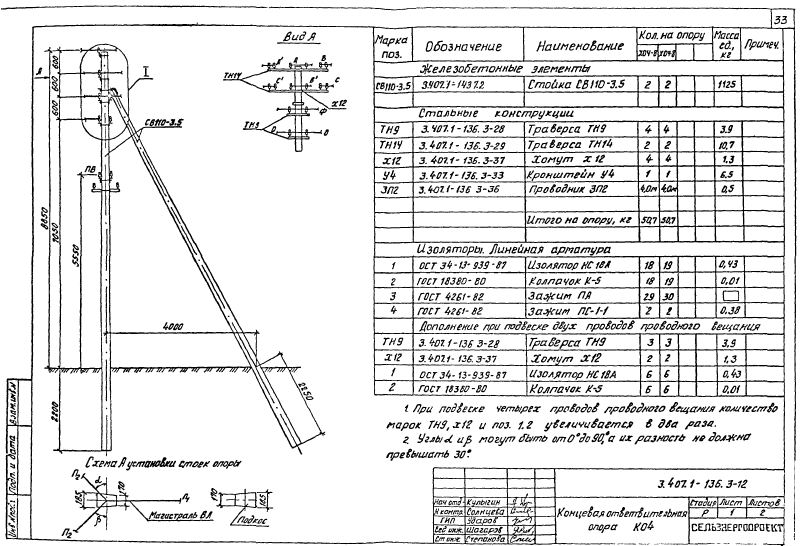 33
Вид А
А' А В
ТН14
С' В' С
Х12
ТН9
Ф
О О
А
I
600
600
600
СВ110-3.5
ПВ
8850
7050
5550
4000
2200
2250
Марка поз.
Обозначение
Наименование
Кол. на опору
К04-8 К04-8
Масса ед., кг
Примеч.
Железобетонные элементы
СВ110-3.5 3.407.1-143.7.2 Стойка СВ110-3.5 2 2 1125
Стальные конструкции
ТН9 3.407.1-136.3-28 Траверса ТН9 4 4 3.9
ТН14 3.407.1-136.3-29 Траверса ТН14 2 2 10,7
Х12 3.407.1-136.3-37 Хомут Х12 4 4 1,3
У4 3.407.1-136.3-33 Кронштейн У4 1 1 6,5
ЗП2 3.407.1-136 3-36 Проводник ЗП2 4,0м 4,0м 0,5
Итого на опору, кг 50,7 50,7
Изоляторы. Линейная арматура
1 ОСТ 34-13-939-87 Изолятор НС18А 18 19 0,43
2 ГОСТ 18380-80 Колпачок К-5 18 19 0,01
3 ГОСТ 4261-82 Зажим ПА 29 30
4 ГОСТ 4261-82 Зажим ПС-1-1 2 2 0,38
Дополнение при подвеске двух проводов проводного вещания
ТН9 3.407.1-136 3-28 Траверса ТН9 3 3 3,9
Х12 3.407.1-136.3-37 Хомут Х12 2 2 1,3
1 ОСТ 34-13-939-87 Изолятор НС18А 6 6 0,43
2 ГОСТ 18380-80 Колпачок К-5 6 6 0,01
1. При подвеске четырех проводов проводного вещания количество
марок ТН9, Х12 и поз. 1,2 увеличивается в два раза.
2. Углы α и β могут быть от 0° до 90°, а их разность не должна
превышать 30°.
Схема А установки стоек опоры
П2
α
185
170
Л1
β
П2
Магистраль ВЛ
170
165
Подкос
Взам.инв.№
Подп. и дата
Инв.№ подл.
3.407.1-136.3-12
Нач.отд. Кулыгин
Н.контр. Солнцева
ГИП Ударов
Вед.инж. Шагаров
Ст.инж. Степанова
Концевая ответвительная
опора К04
Стадия Лист Листов
Р 1 2
СЕЛЬЭНЕРГОПРОЕКТ